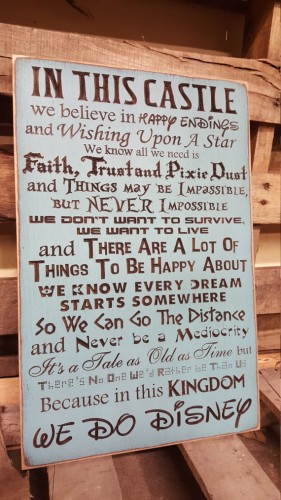 IN THIS CASTLE
we believe in HAPPY ENDINGS
and Wishing Upon A Star
We know all we need is
Faith, Trust and Pixie Dust
and THINGS MAY BE IMPASSIBLE,
BUT NEVER IMPOSSIBLE
WE DON'T WANT TO SURVIVE,
WE WANT TO LIVE
and THERE ARE A LOT OF
THINGS TO BE HAPPY ABOUT
WE KNOW EVERY DREAM
STARTS SOMEWHERE
So We Can Go The Distance
and Never be a Mediocrity
It's a Tale as Old as Time but
There's No One We'd Rather be Than Us
Because in this KINGDOM
WE DO DISNEY